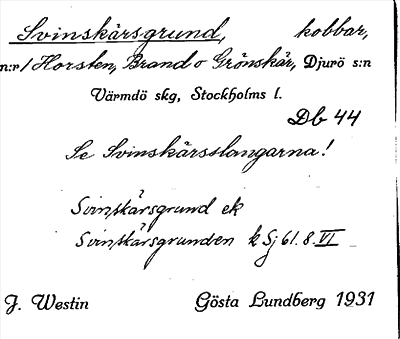 Svinskärsgrund, kobbar,
n:r/Horsten, Brand o Grönskär, Djurö s:n
Värmdö skg, Stockholms l.
Db 44
Se Svinskärsslangarna!
Svinskärsgrund ek
Svinskärsgrunden k Sj 61.8.VI
J. Westin Gösta Lundberg 1931